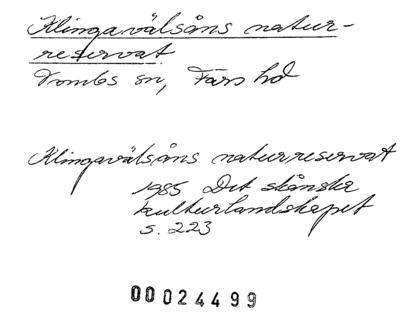 Klingavälsåns natur-
reservat
Vombs sn, Färs hd
Klingavälsåns naturreservat
1985 Det skånska
kulturlandskapet
s. 223
00024499